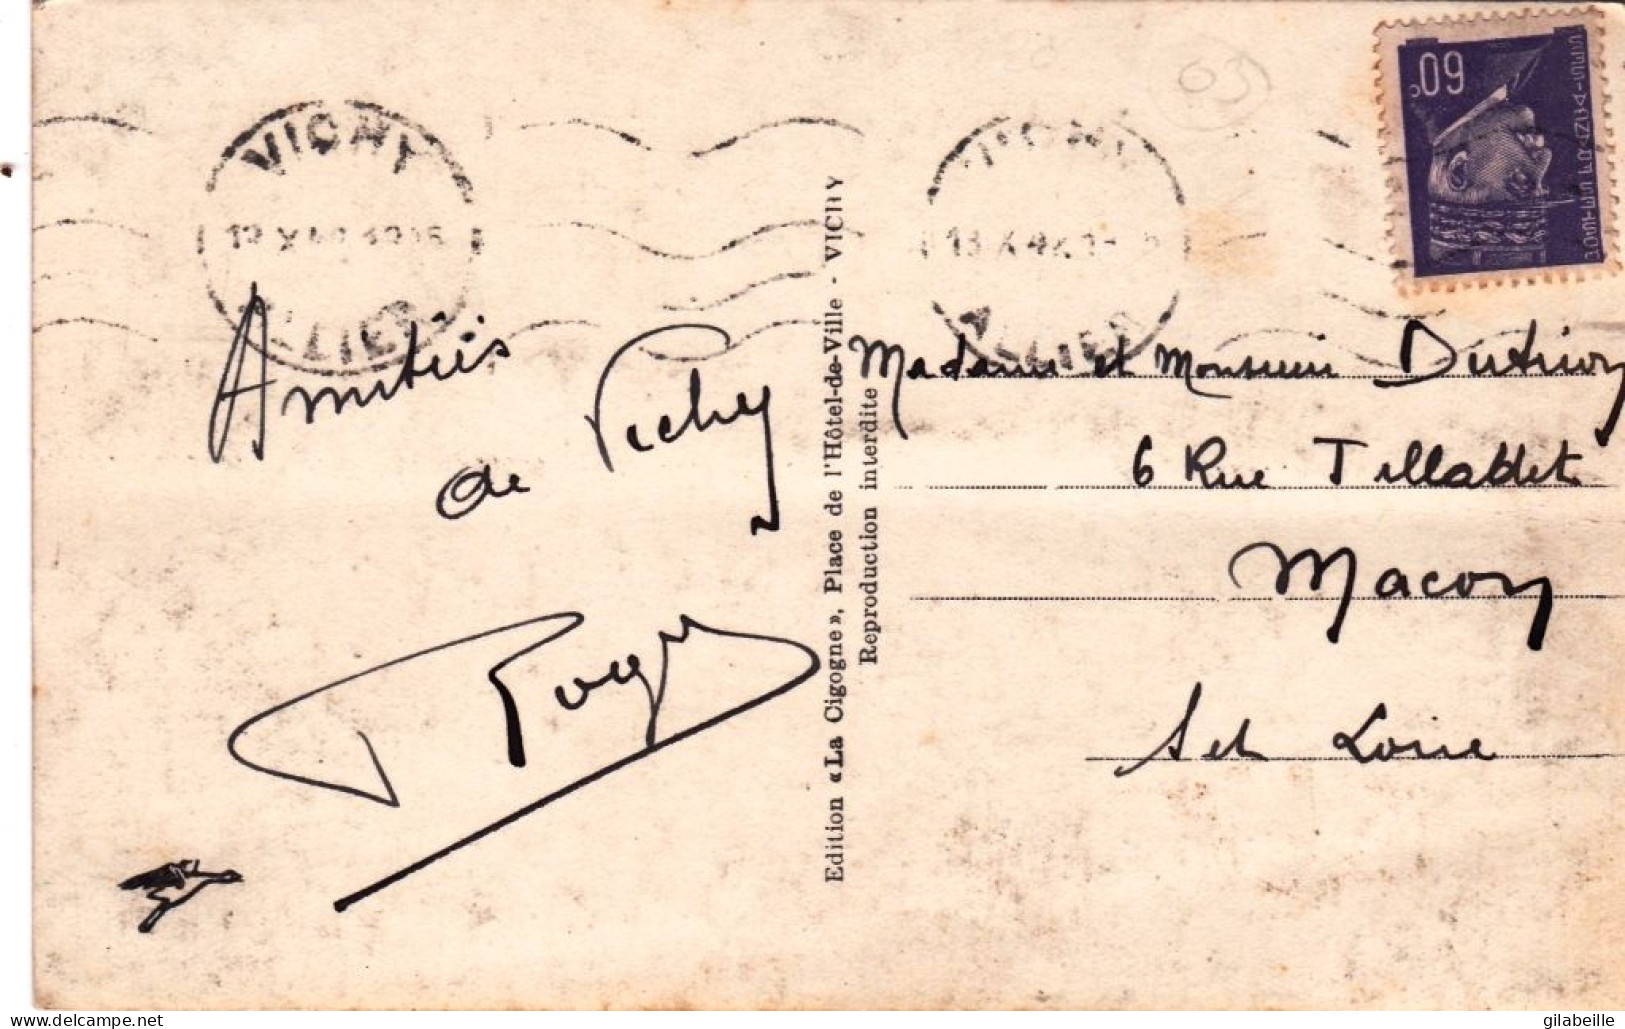 VICHY
ALLIER
VICHY
ALLIER
03
60c
POSTES FRANÇAISES
Amitiés
de Vichy
Roger
Edition «La Cigogne», Place de l'Hôtel-de-Ville - VICHY
Reproduction interdite
Madame et Monsieur Dutrion
6 Rue
Macon
S et Loire
delcampe.net
gilabeille